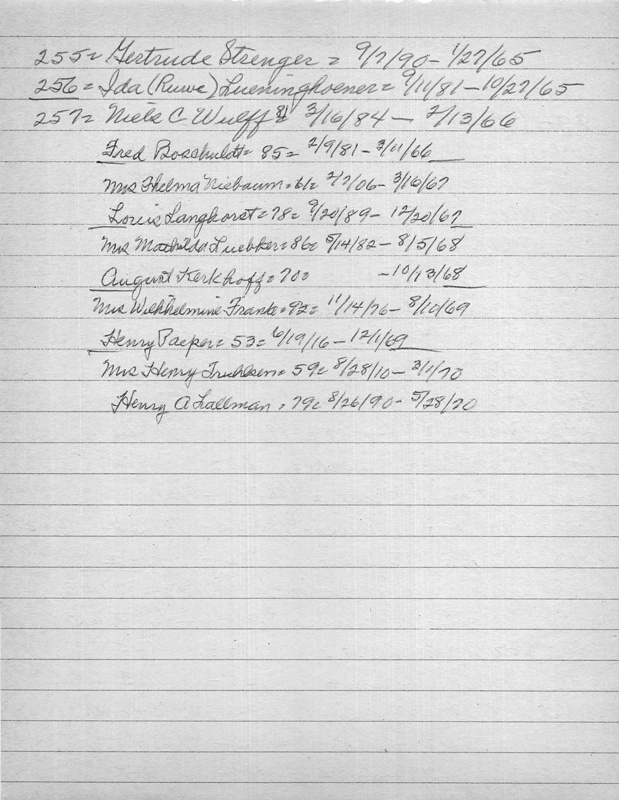 255= Gertrude Strenger = 9/7/90 - 1/27/65
256= Ida (Ruwe) Lueninghoener= 9/11/81 - 10/27/65
257= Niels C Wulff 81= 3/16/84 - 2/13/66
Fred Boschuldt= 85= 2/9/81 - 3/11/66
Mrs Thelma Niebaum= 61= 2/7/06 - 3/16/67
Louis Langhorst= 78= 9/20/89 - 12/20/67
Mrs Machilda Luebker= 86= 5/14/82 - 8/5/68
August Kerkhoff= 70= - 10/13/68
Mrs Wilhhelmine Franke= 92= 11/14/76 - 8/10/69
Henry Paeper= 53= 6/19/16 - 12/1/69
Mrs Henry = 59= 8/28/10 - 3/1/70
Henry A Lallman = 79= 8/26/90 - 5/28/70